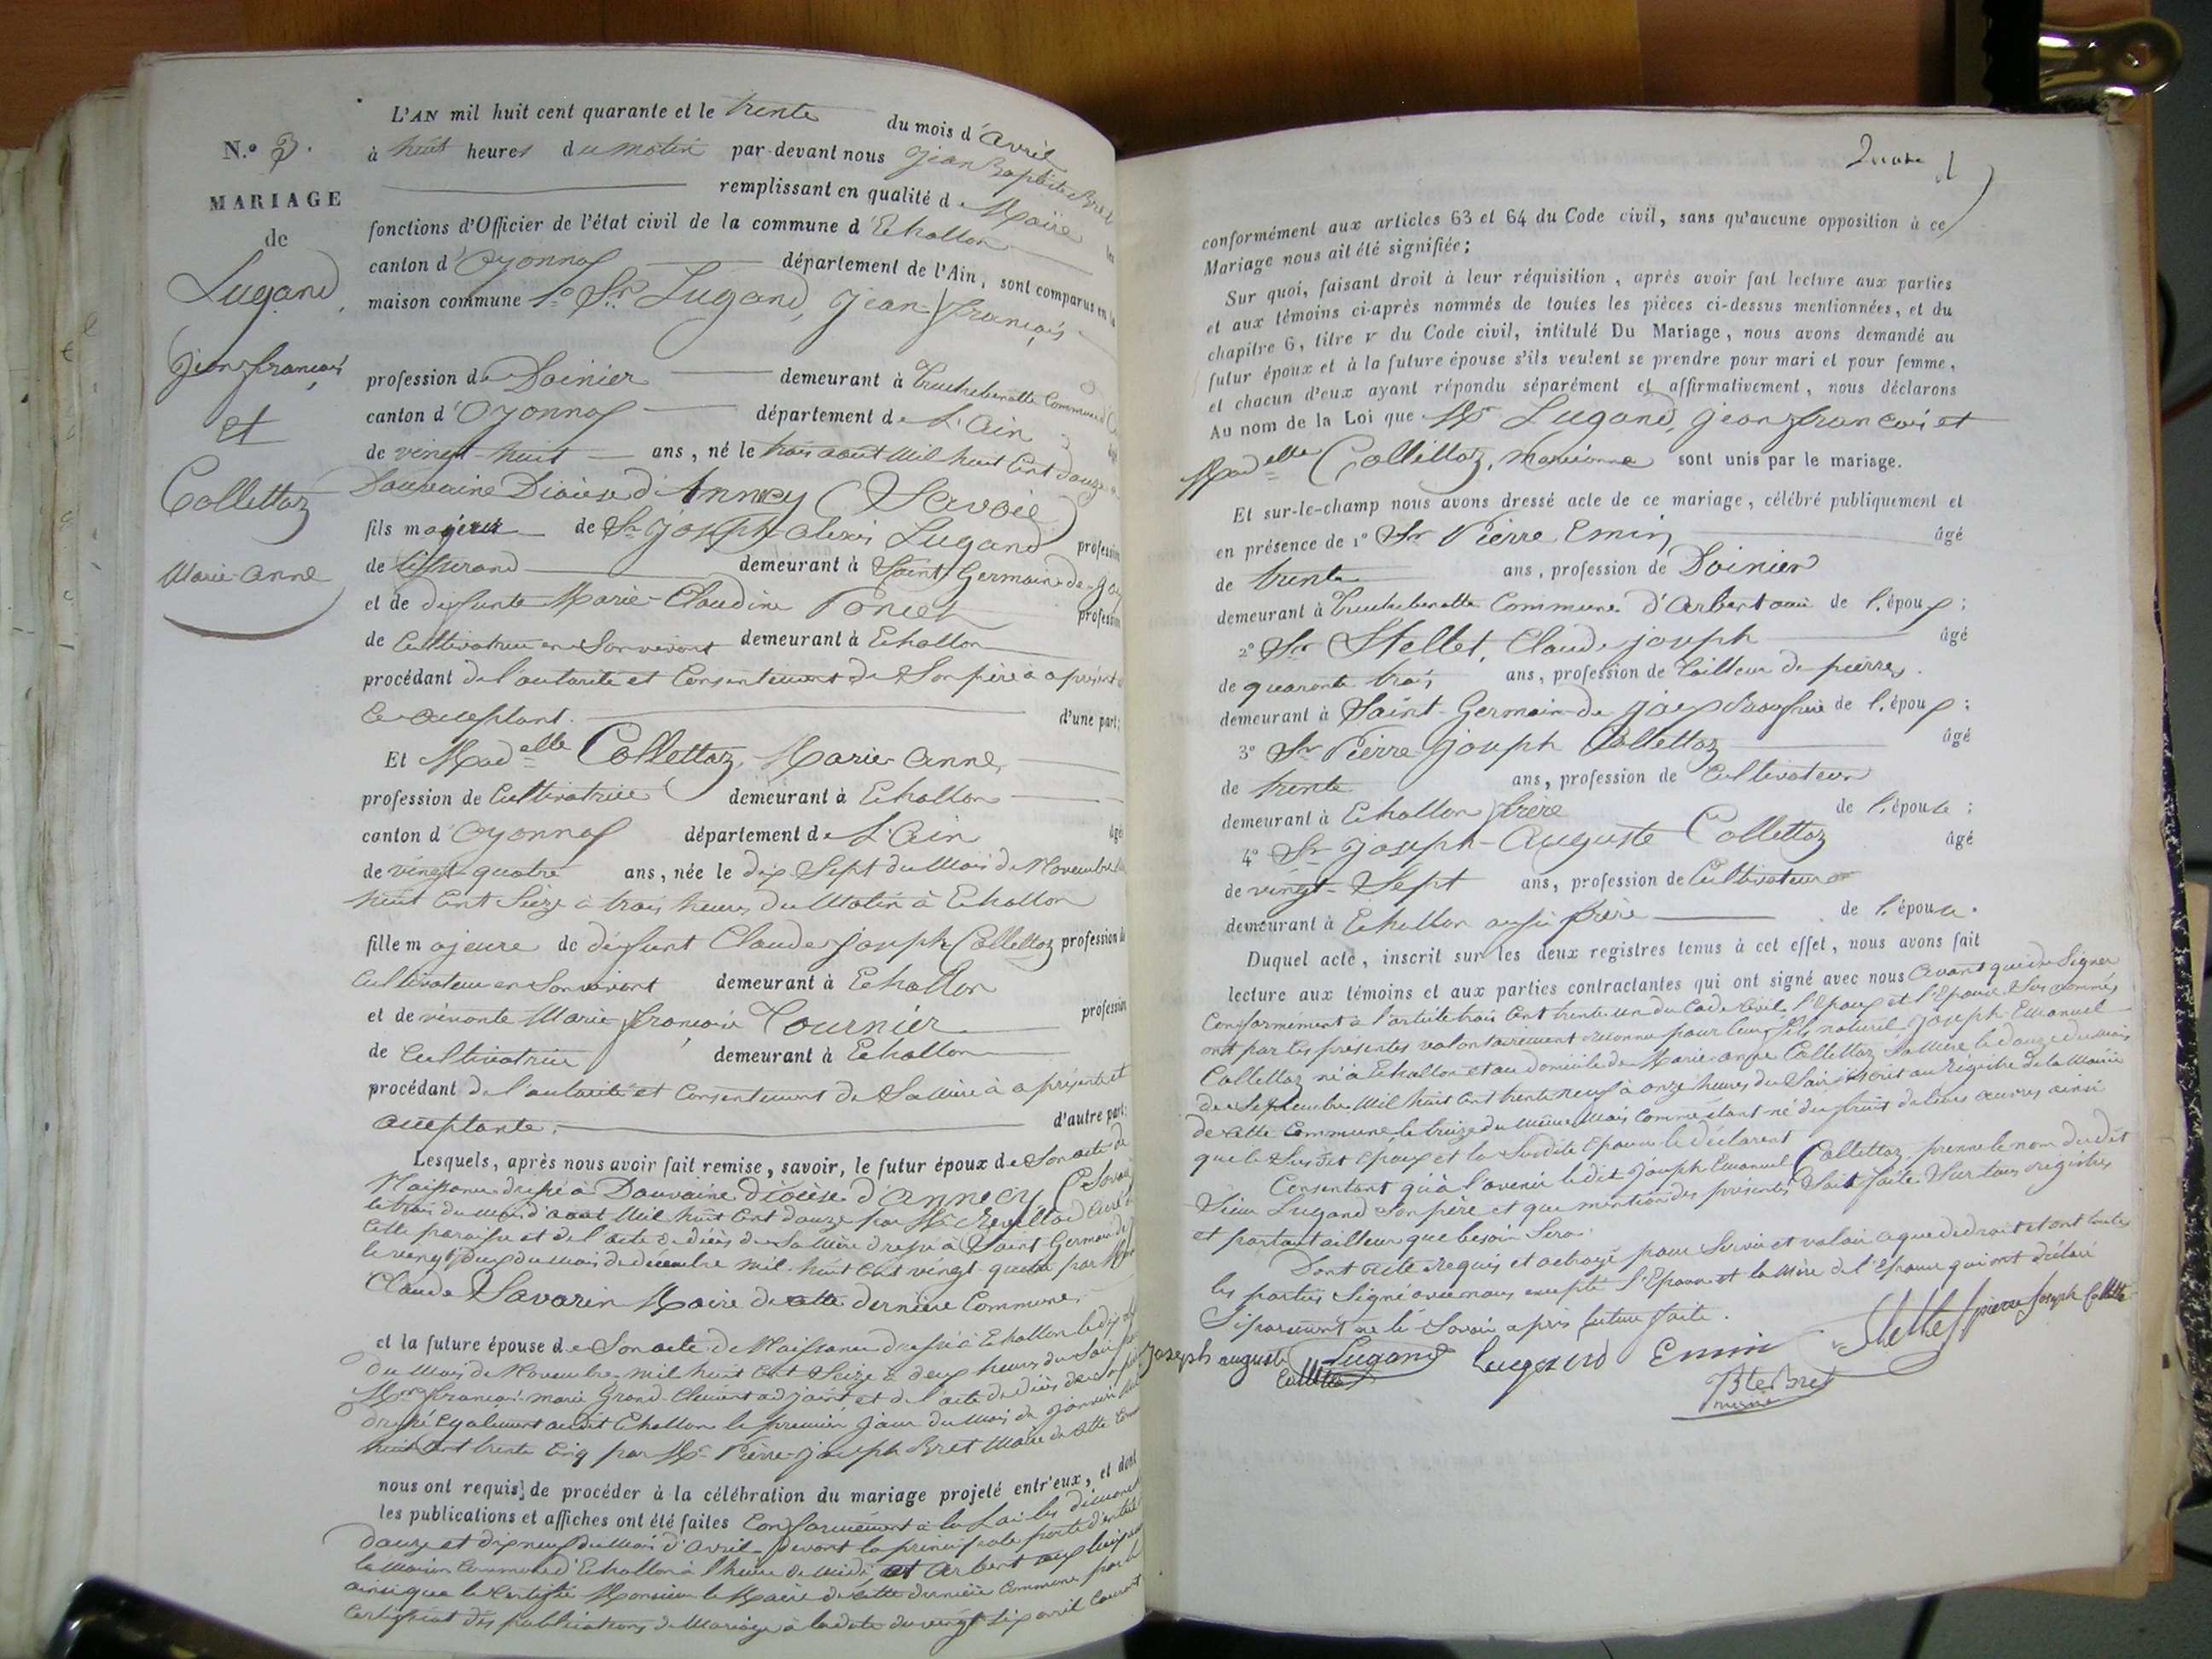 N.º 3.
MARIAGE
de
Lugand,
jean françois
et
Collettaz
Marie-anne
L'AN mil huit cent quarante et le trente du mois d'avril
à huit heures du matin par-devant nous jean Baptiste Bret
remplissant en qualité de Maire les
fonctions d'Officier de l'état civil de la commune d'Echallon
canton d'Oyonnax département de l'Ain, sont comparus en la
maison commune 1º Sr. Lugand, jean-françois
profession de demeurant à commune
canton d'Oyonnax département de L'Ain
de vingt-huit ans, né le trois aout mil huit cent douze
Douvaine Diocèse d'Annecy (Savoie)
fils majeur de Sr. joseph alexis Lugand profession
de tisserand demeurant à Saint Germain de joux
et de defunte Marie-Claudine Poncet profession
de Cultivatrice en Son vivant demeurant à Echallon
procédant de l'autorité et Consentement de Son père à ce présent
et acceptant. d'une part;
Et Madelle Collettaz, Marie anne,
profession de Cultivatrice demeurant à Echallon
canton d'Oyonnax département de L'Ain âgé
de vingt-quatre ans, née le dix Sept du mois de Novembre
huit Cent Seize à trois heures du Matin à Echallon
fille majeure de défunt Claude joseph Collettaz profession de
cultivateur en Son vivant demeurant à Echallon
et de vivante Marie françoise Tournier profession
de Cultivatrice demeurant à Echallon
procédant de l'autorité et Consentement de Sa Mère à ce présente et
acceptante. d'autre part;
Lesquels, après nous avoir fait remise, savoir, le futur époux de Son acte de
Naissance dressé à Douvaine diocèse d'Annecy (Savoie
le trois du mois d'aout Mil huit Cent douze par Mr. Curé de
cette paroisse et de l'acte de décès de Sa Mère dressé à Saint Germain de
le vingt deux du mois de décembre mil huit Cent vingt quatre par Mr
Claude Savarin Maire de cette dernière Commune.
et la future épouse de Son acte de Naissance dressé à Echallon le dix
du Mois de Novembre mil huit Cent Seize à deux heures du Soir
Mr. françois marie Grand-Clement adjoint et de l'acte de décès de
dressé également audit Echallon le premier jour du Mois de janvier
huit Cent trente Cinq par Mr. Pierre-joseph Bret Maire de cette
nous ont requis de procéder à la célébration du mariage projeté entr'eux, et dont
les publications et affiches ont été faites Conformément à la Loi les dimanches
douze et dix neuf du Mois d'avril devant la principale porte d'entrée
la Maison Commune d'Echallon à l'heure de midi, et Arbent
ainsi que le Certifie Monsieur le Maire de cette dernière Commune par le
Certificat des publications de Mariage à la date du vingt Six avril Courant
conformément aux articles 63 et 64 du Code civil, sans qu'aucune opposition à ce
Mariage nous ait été signifiée;
Sur quoi, faisant droit à leur réquisition, après avoir fait lecture aux parties
et aux témoins ci-après nommés de toutes les pièces ci-dessus mentionnées, et du
chapitre 6, titre v du Code civil, intitulé Du Mariage, nous avons demandé au
futur époux et à la future épouse s'ils veulent se prendre pour mari et pour femme,
et chacun d'eux ayant répondu séparément et affirmativement, nous déclarons
Au nom de la Loi que Mr Lugand, jean françois et
Madelle Collettaz, Marieanne sont unis par le mariage.
Et sur-le-champ nous avons dressé acte de ce mariage, célébré publiquement et
en présence de 1º Sr Pierre Emin âgé
de trente ans, profession de
demeurant à Commune d'Arbent ami de l'époux;
2º Sr Stellet, Claude joseph âgé
de quarante trois ans, profession de tailleur de pierres
demeurant à Saint-Germain de joux de l'époux;
3º Sr Pierre joseph Collettaz âgé
de trente ans, profession de Cultivateur
demeurant à Echallon frère de l'épouse;
4º Sr joseph-Auguste Collettaz âgé
de vingt-Sept ans, profession de Cultivateur
demeurant à Echallon aussi frère de l'épouse.
Duquel acte, inscrit sur les deux registres tenus à cet effet, nous avons fait
lecture aux témoins et aux parties contractantes qui ont signé avec nous avant que de Signer
Conformément à l'article trois Cent trente un du Code Civil l'Epoux et l'Epouse Sus nommés
ont par les présentes volontairement reconnu pour leur fils naturel joseph Emanuel
Collettaz né à Echallon et au domicile de Marie anne Collettaz Sa Mère le douze du mois
de Septembre Mil huit Cent trente neuf à onze heures du Soir inscrit au Régistre de la Mairie
de cette Commune le treize du même Mois comme étant né du fruit de leurs œuvres ainsi
que le Susdit époux et la Susdite épouse le déclarent
Consentant qu'à l'avenir le dit joseph Emanuel Collettaz prenne le nom dudit
Sieur Lugand Son père et que mention des présentes Soit faite Sur tous régistres
et partout ailleurs que besoin Sera.
Dont acte requis et octroyé pour Servir et valoir à que de droit et ont toutes
les parties Signé avec nous excepté l'Epouse et la Mère de l'Epouse qui ont déclaré
Séparément ne le Savoir après lecture faite.
Joseph auguste Collettaz Lugand Lugand Emin Stellet pierre joseph Collettaz
JBte Bret
maire